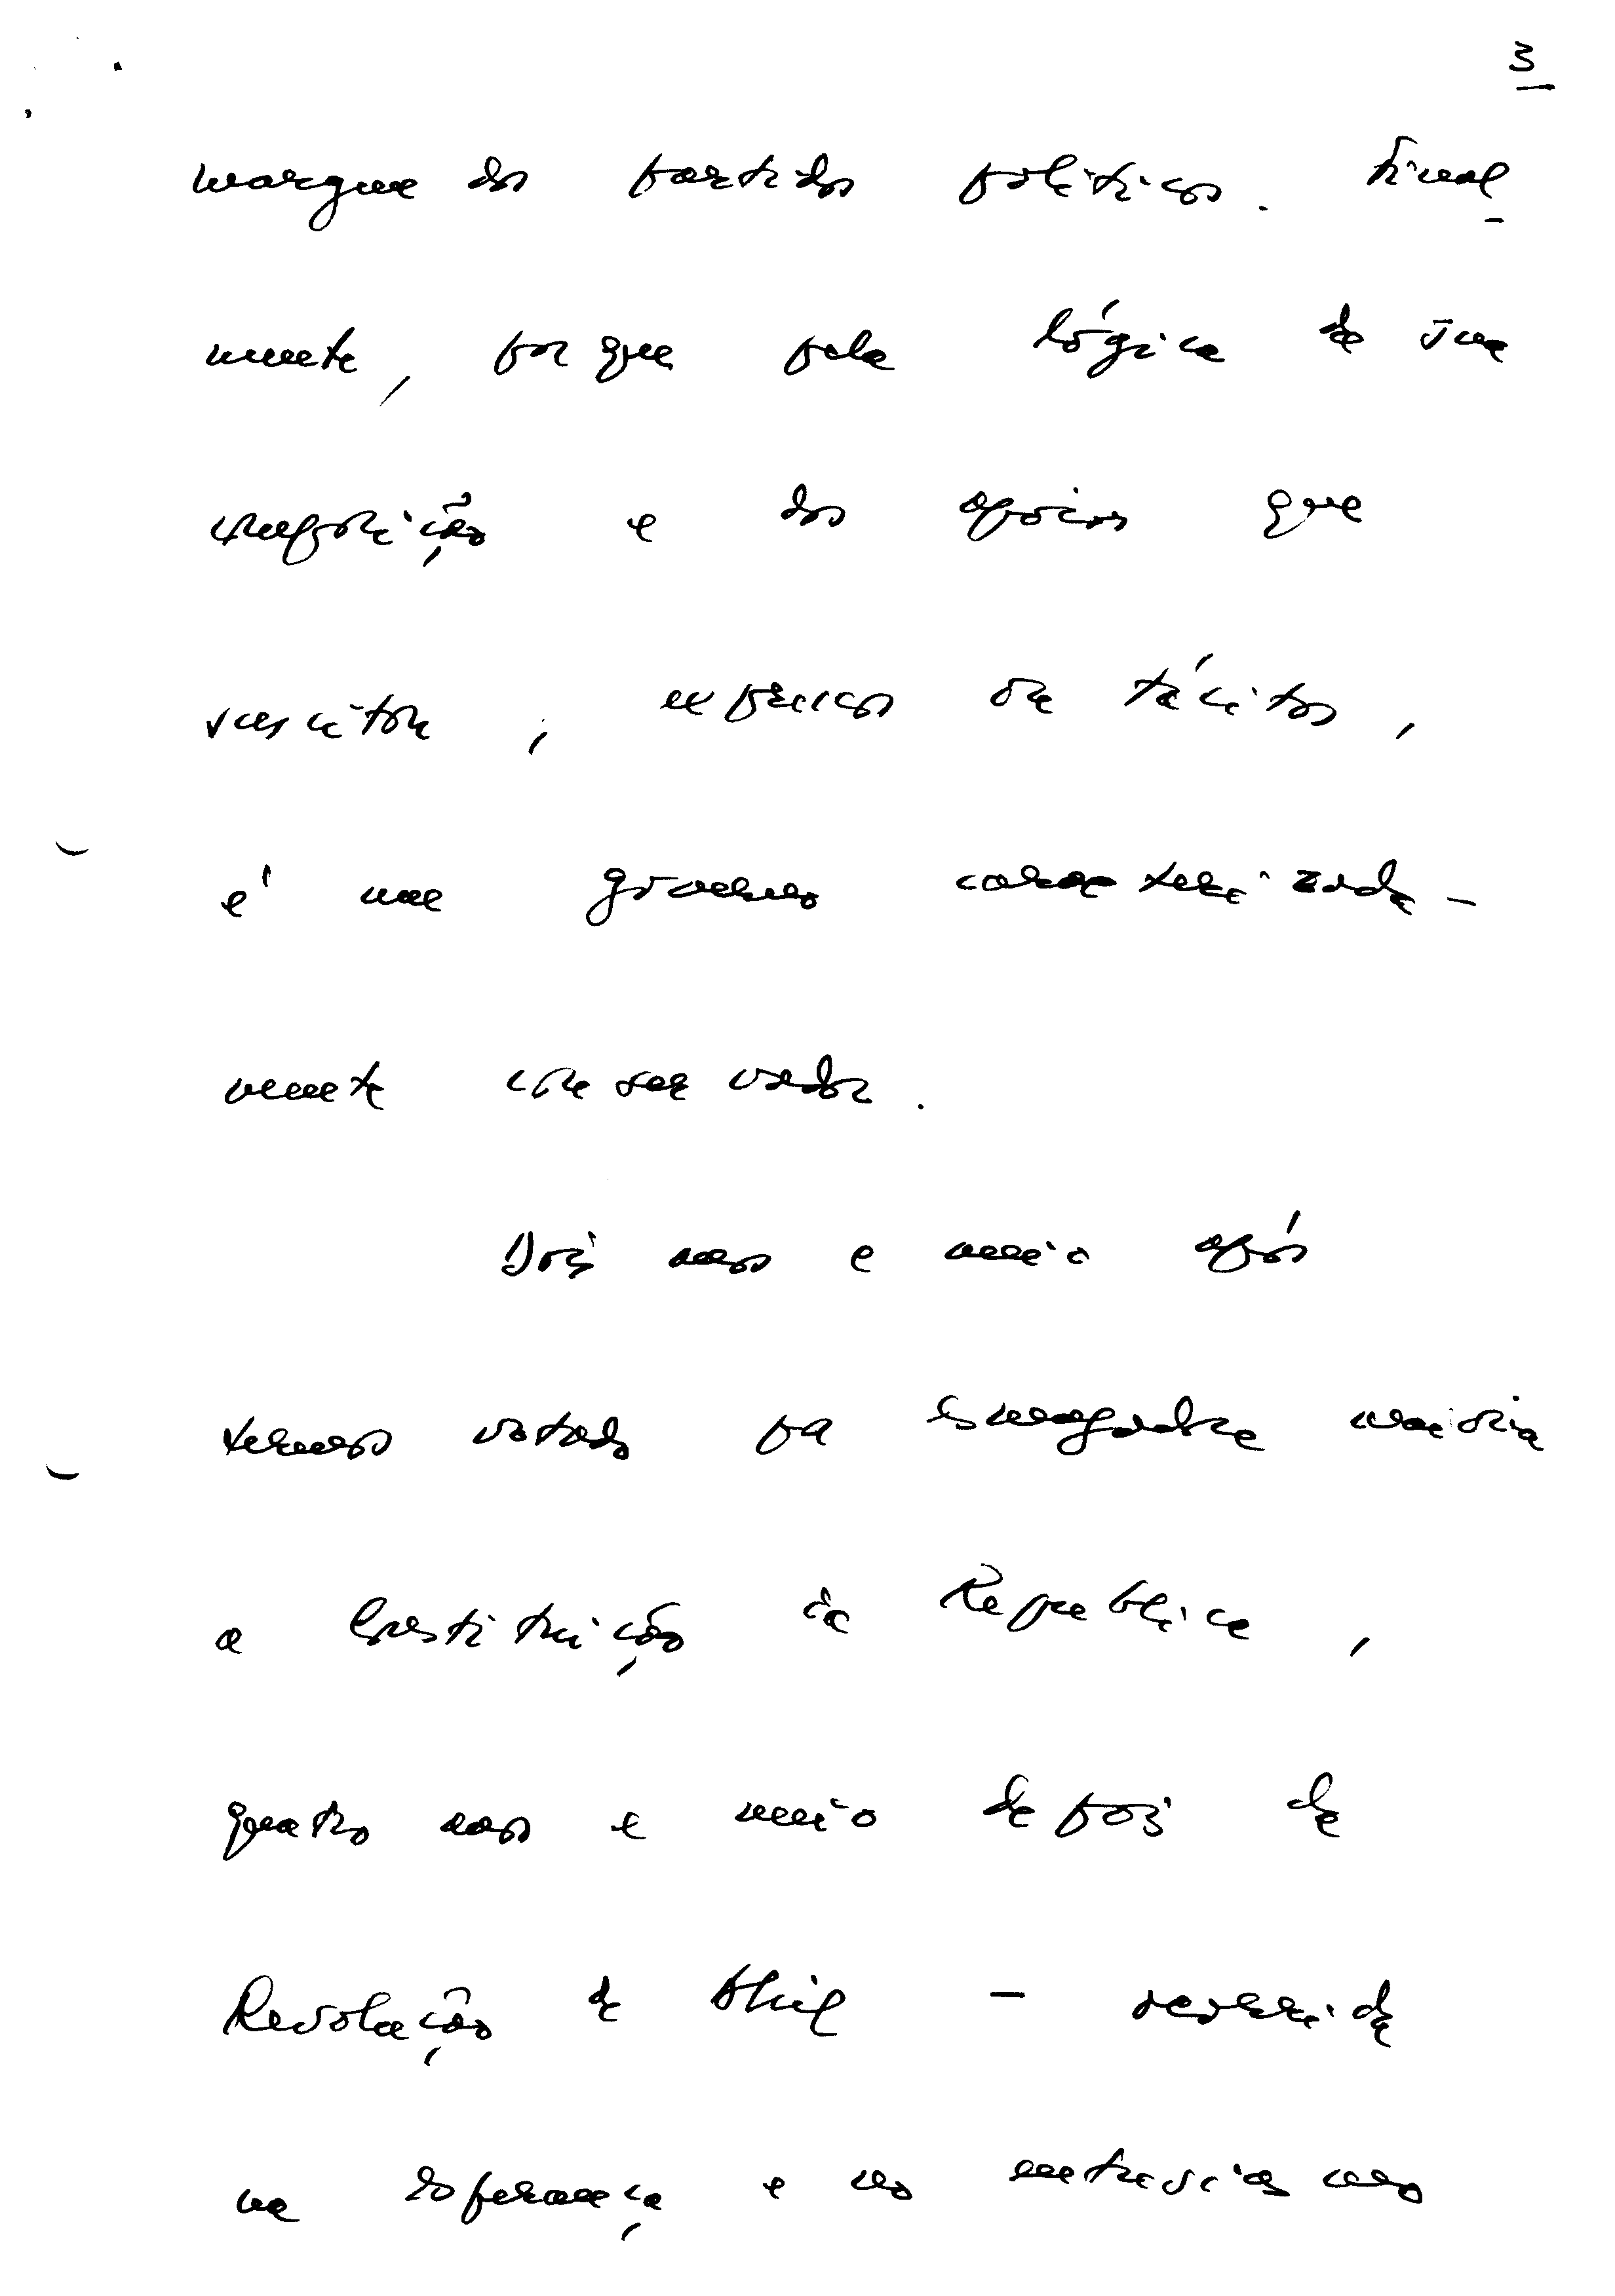 3
margem dos partidos políticos. Final-
mente, porque pela lógica da sua
composição e dos apoios que
suscitou, expressos ou tácitos,
é um governo caracterizada-
mente conservador.
Dois anos e meio após
termos votado por esmagadora maioria
a Constituição da República,
quatro anos e meio depois da
Revolução de Abril -
na esperança e no entusiasmo